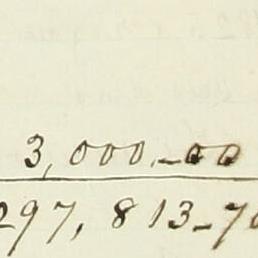 3,000,-00
297, 813-70